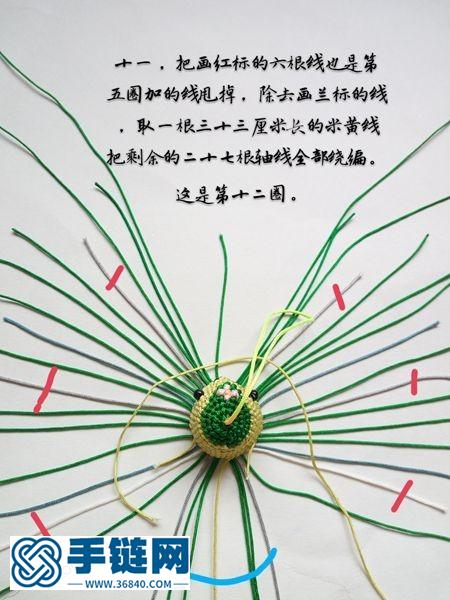 十一，把画红标的六根线也是第
五圈加的线甩掉，除去画兰标的线
，取一根三十三厘米长的米黄线
把剩余的二十七根轴线全部绕编。
这是第十二圈。
手链网
WWW.36840.COM